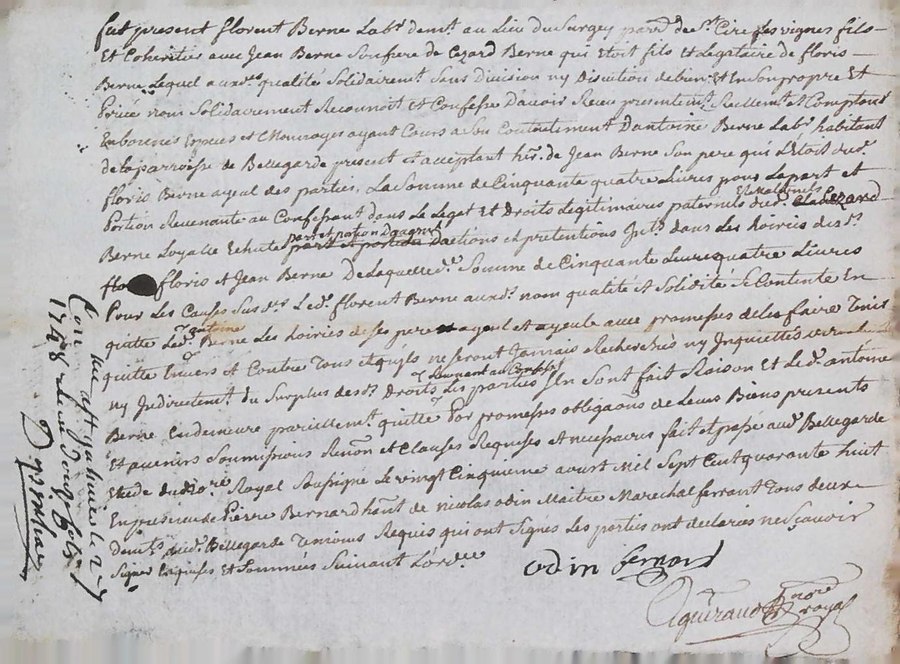 fut present florent Berne Labr. demt. au Lieu du Surgey parr. de St. Cire les vignes fils
Et Coheritier avec Jean Berne Son frere de Cezard Berne qui Etoit fils et Legataire de floris
Berne Lequel auxdes. qualité Solidairemt. Sans division ny Discution de biens Et En Son propre Et
Privé nom Solidairement Reconnoit et Confesse D'avoir Receu presentemt. Reellemt. et Comptant
En bonnes Especes et Monnoyes ayant Cours a Son Contentement D'antoine Berne Labr. habitant
de la parroisse de Bellegarde present et acceptant her. de Jean Berne Son pere qui L'étoit dud.
floris Berne ayeul des parties. La Somme de Cinquante quatre Livres pour La part et
Portion Revenante au Confessant dans Le Legat Et Droits Legitimaires paternels Et Maternels dud. Cezard
Berne Loyalle Echute part et portion D'augment part et portion D'actions et pretentions Intts. dans Les hoiries des St.
flo floris et Jean Berne De Laquelle de. Somme de Cinquante Livres quatre Livres
Pour Les Causes Susdes. Led. florent Berne auxd. nom qualité et Solidité Se Contente En
quitte Led. antoine Berne Les hoiries de Ses pere ayeul et ayeule avec promesses de les faire Tenir
quitte Envers et Contre Tous et qu'ils ne Seront Jamais Recherchés ny Inquiettés
ny Indirectement du Surplus desd. Droits Revenant au Confesst. Les parties S'En Sont fait Raison Et Led. antoine
Berne En demeure pareillemt. quitte Par promesses obligaons. de Leurs Biens presents
Et avenirs Soumissions Renon. et Clauses Requises et necessaires fait et passé aud. Bellegarde
Etude du no.re Royal Soussigné Le vingt Cinquieme aoust Mil Sept Cent quarante huit
En presence de Pierre Bernard hant. de nicolas odin Maitre Marechal ferrant Tous deux
demts. aud. Bellegarde Temoins Requis qui ont Signés Les parties ont declarées ne Sçavoir
Signer Enquises et Sommées Suivant L'ordce.
odin bernard
Aguiraud nore royal
Con
1748